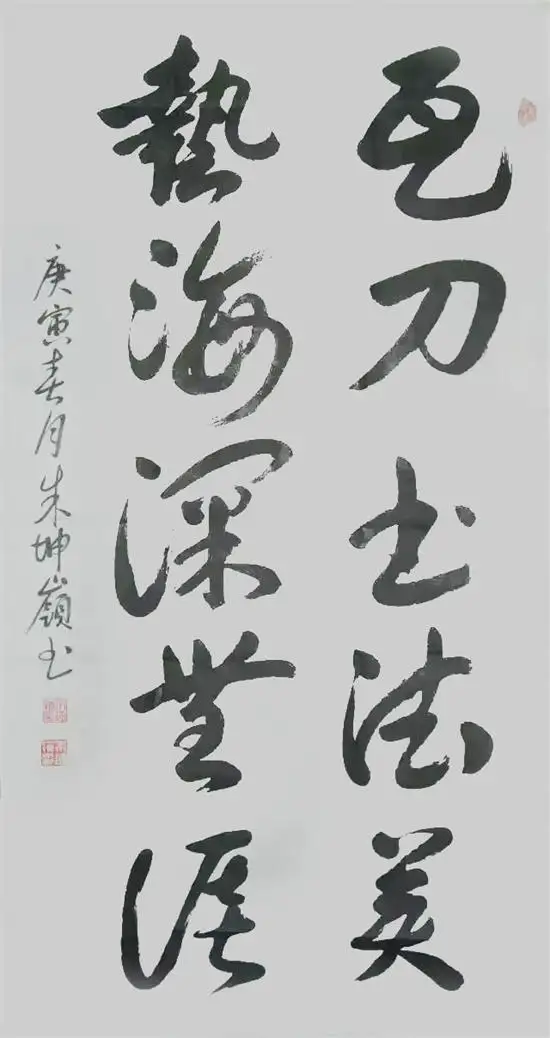 瓦刀书法美
藝海深無涯
庚寅春月朱坤嶺书